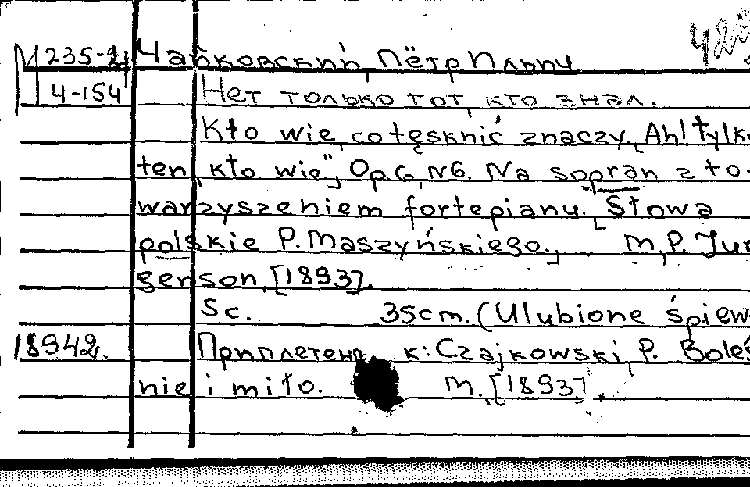 М 235-21 Чайковский, Пётр Ильич 42
4-154 Нет только тот, кто знал.
Kto wie, co tęsknić znaczy, Ah! tylk
ten, kto wie", Op.6, N6. Na sopran z to-
warzyszeniem fortepianu. Słowa
polskie P. Maszyńskiego., M, P. Jur
genson, [1893].
Sc. 35cm. (Ulubione śpiew
18942. Приплетено к: Czajkowski, P. Boleś
nie i miło. M. [1893]